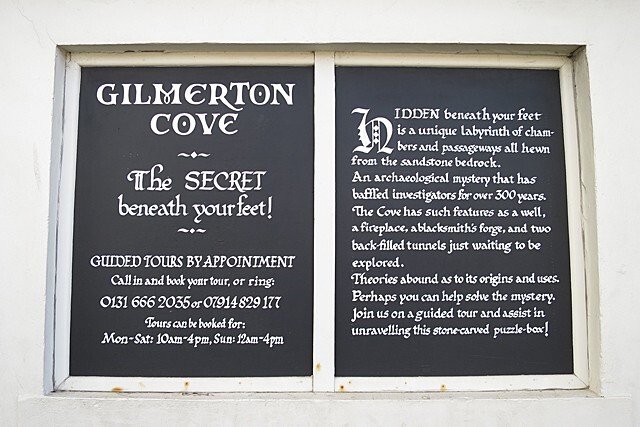 GILMERTON
COVE
The SECRET
beneath your feet!
GUIDED TOURS BY APPOINTMENT
Call in and book your tour, or ring:
0131 666 2035 or 07914 829 177
Tours can be booked for:
Mon-Sat: 10am-4pm, Sun: 12am-4pm
HIDDEN beneath your feet
is a unique labyrinth of cham-
bers and passageways all hewn
from the sandstone bedrock.
An archaeological mystery that has
baffled investigators for over 300 years.
The Cove has such features as a well,
a fireplace, a blacksmith's forge, and two
back-filled tunnels just waiting to be
explored.
Theories abound as to its origins and uses.
Perhaps you can help solve the mystery.
Join us on a guided tour and assist in
unravelling this stone-carved puzzle-box!